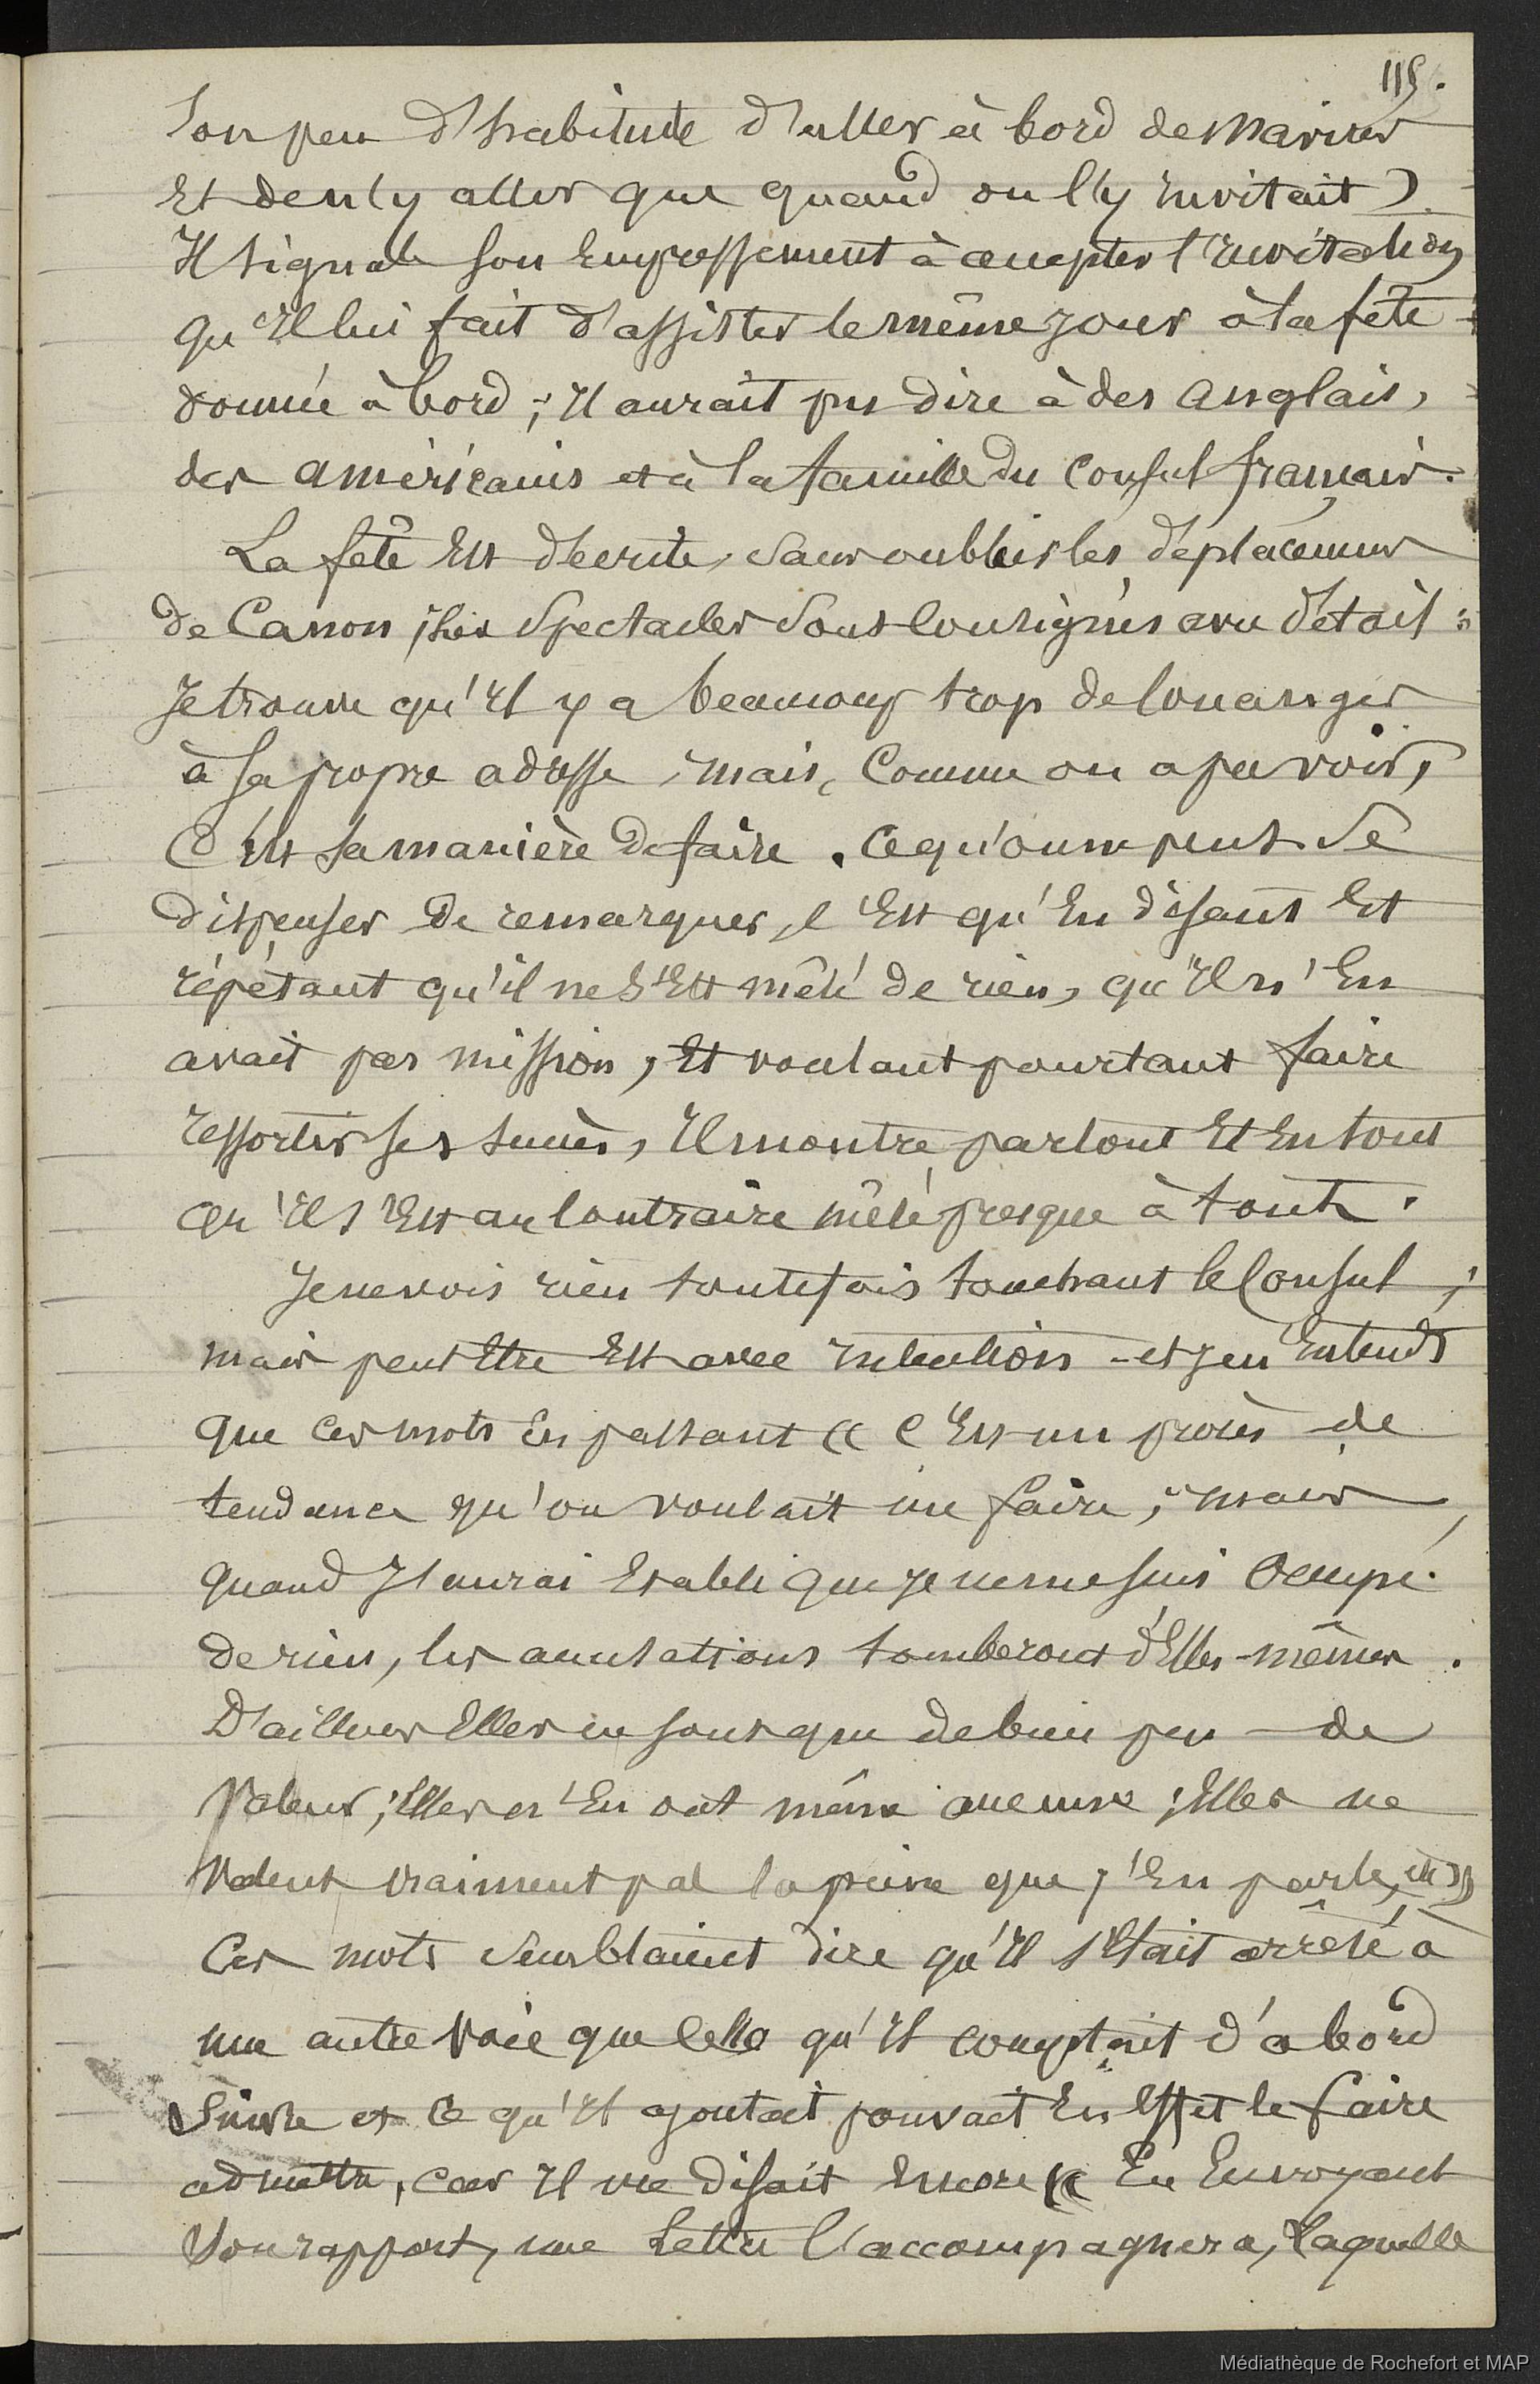 115.
Son peu d'habitude d'aller à bord des navires
Et de n'y aller que quand on l'y invitait).
Il signale son Empressement à accepter l'Invitation
qu'Il lui fait d'assister le même jour à la fête
donnée à bord ; Il aurait pu dire à des Anglais,
des américains et à la famille du Consul français.
La fête Est décrite, sans oublier les déplacements
de Canon ; les Spectacles sont consignés avec détail :
Je trouve qu'Il y a beaucoup trop de louanges
à sa propre adresse, mais, Comme on a pu voir,
C'Est sa manière de faire. Ce qu'on ne peut Se
dispenser de remarquer, c'Est qu'En disant Et
répétant qu'il ne s'Est mêlé de rien, qu'Il n'En
avait pas mission, Et voulant pourtant faire
ressortir ses succès, Il montre partout Et En tout
qu'Il s'Est au Contraire mêlé presque à tout.
Je ne vois rien toutefois touchant le Consul ;
mais peut Etre Est avec Intention - et j'en Entends
que ces mots En passant « C'Est un procès de
tendance qu'on voulait me faire ; mais,
quand J'aurai Etabli que je ne me suis Occupé
de rien, les accusations tomberont d'Elles-mêmes.
D'ailleurs Elles ne sont que de bien peu de
Valeur ; Elles n'En ont même aucune ; Elles ne
Valent vraiment pas la peine que j'En parle, »
Ces mots Semblaient dire qu'Il s'Etait arrêté à
une autre Voie que Celle qu'Il comptait d'abord
Suivre et Ce qu'Il ajoutait pouvait En Effet le faire
admettre, car Il me disait Encore « En Envoyant
Son rapport, une Lettre l'accompagnera, Laquelle
Médiathèque de Rochefort et MAP